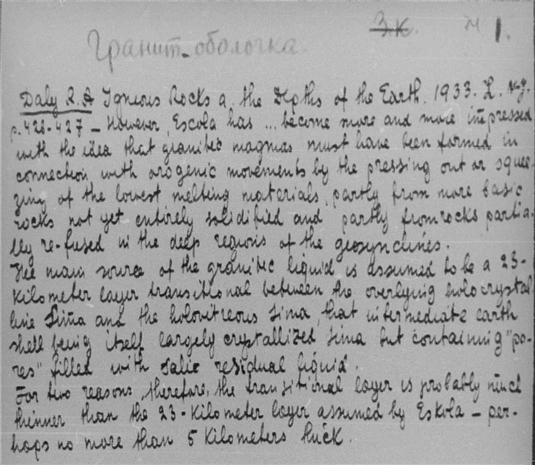 З.К. № 1.
Гранит. оболочка.
Daly R.A Igneous Rocks a. the Depths of the Earth. 1933. L. N.y.
p. 426-427 – However, Escola has ... become more and more impressed
with the idea that granitic magmas must have been formed in
connection with orogenic movements by the pressing out or squee-
zing of the lowest melting materials, partly from more basic
rocks not yet entirely solidified and partly from rocks partia-
lly re-fused in the deep regions of the geosynclines.
The main source of the granitic liquid is assumed to be a 23-
kilometer layer transitional between the overlying holocrystal-
line Sima and the holovitreous sima, that intermediate earth
shell being itself largely crystallized sima but containing "po-
res" filled with salic residual liquid.
For two reasons, therefore, the transitional layer is probably much
thinner than the 23-kilometer layer assumed by Eskola – per-
haps no more than 5 kilometers thick.